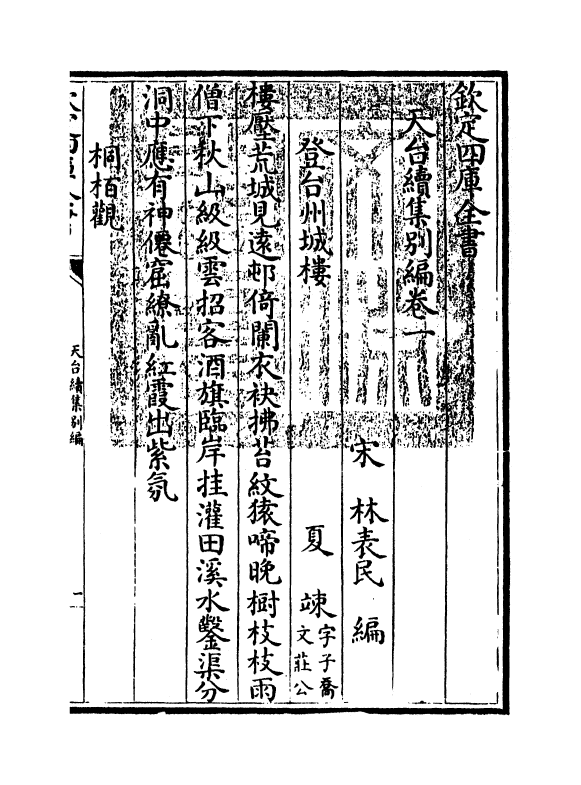 欽定四庫全書
天台續集别編卷一
宋 林表民 編
登台州城樓 夏 竦 字子喬文莊公
樓壓荒城見遠邨倚闌衣袂拂苔紋猿啼晚樹枝枝雨
僧下秋山級級雲招客酒旗臨岸挂灌田溪水鑿渠分
洞中應有神僊窟繚亂紅霞出紫氛
桐栢觀
天台續集别編
一